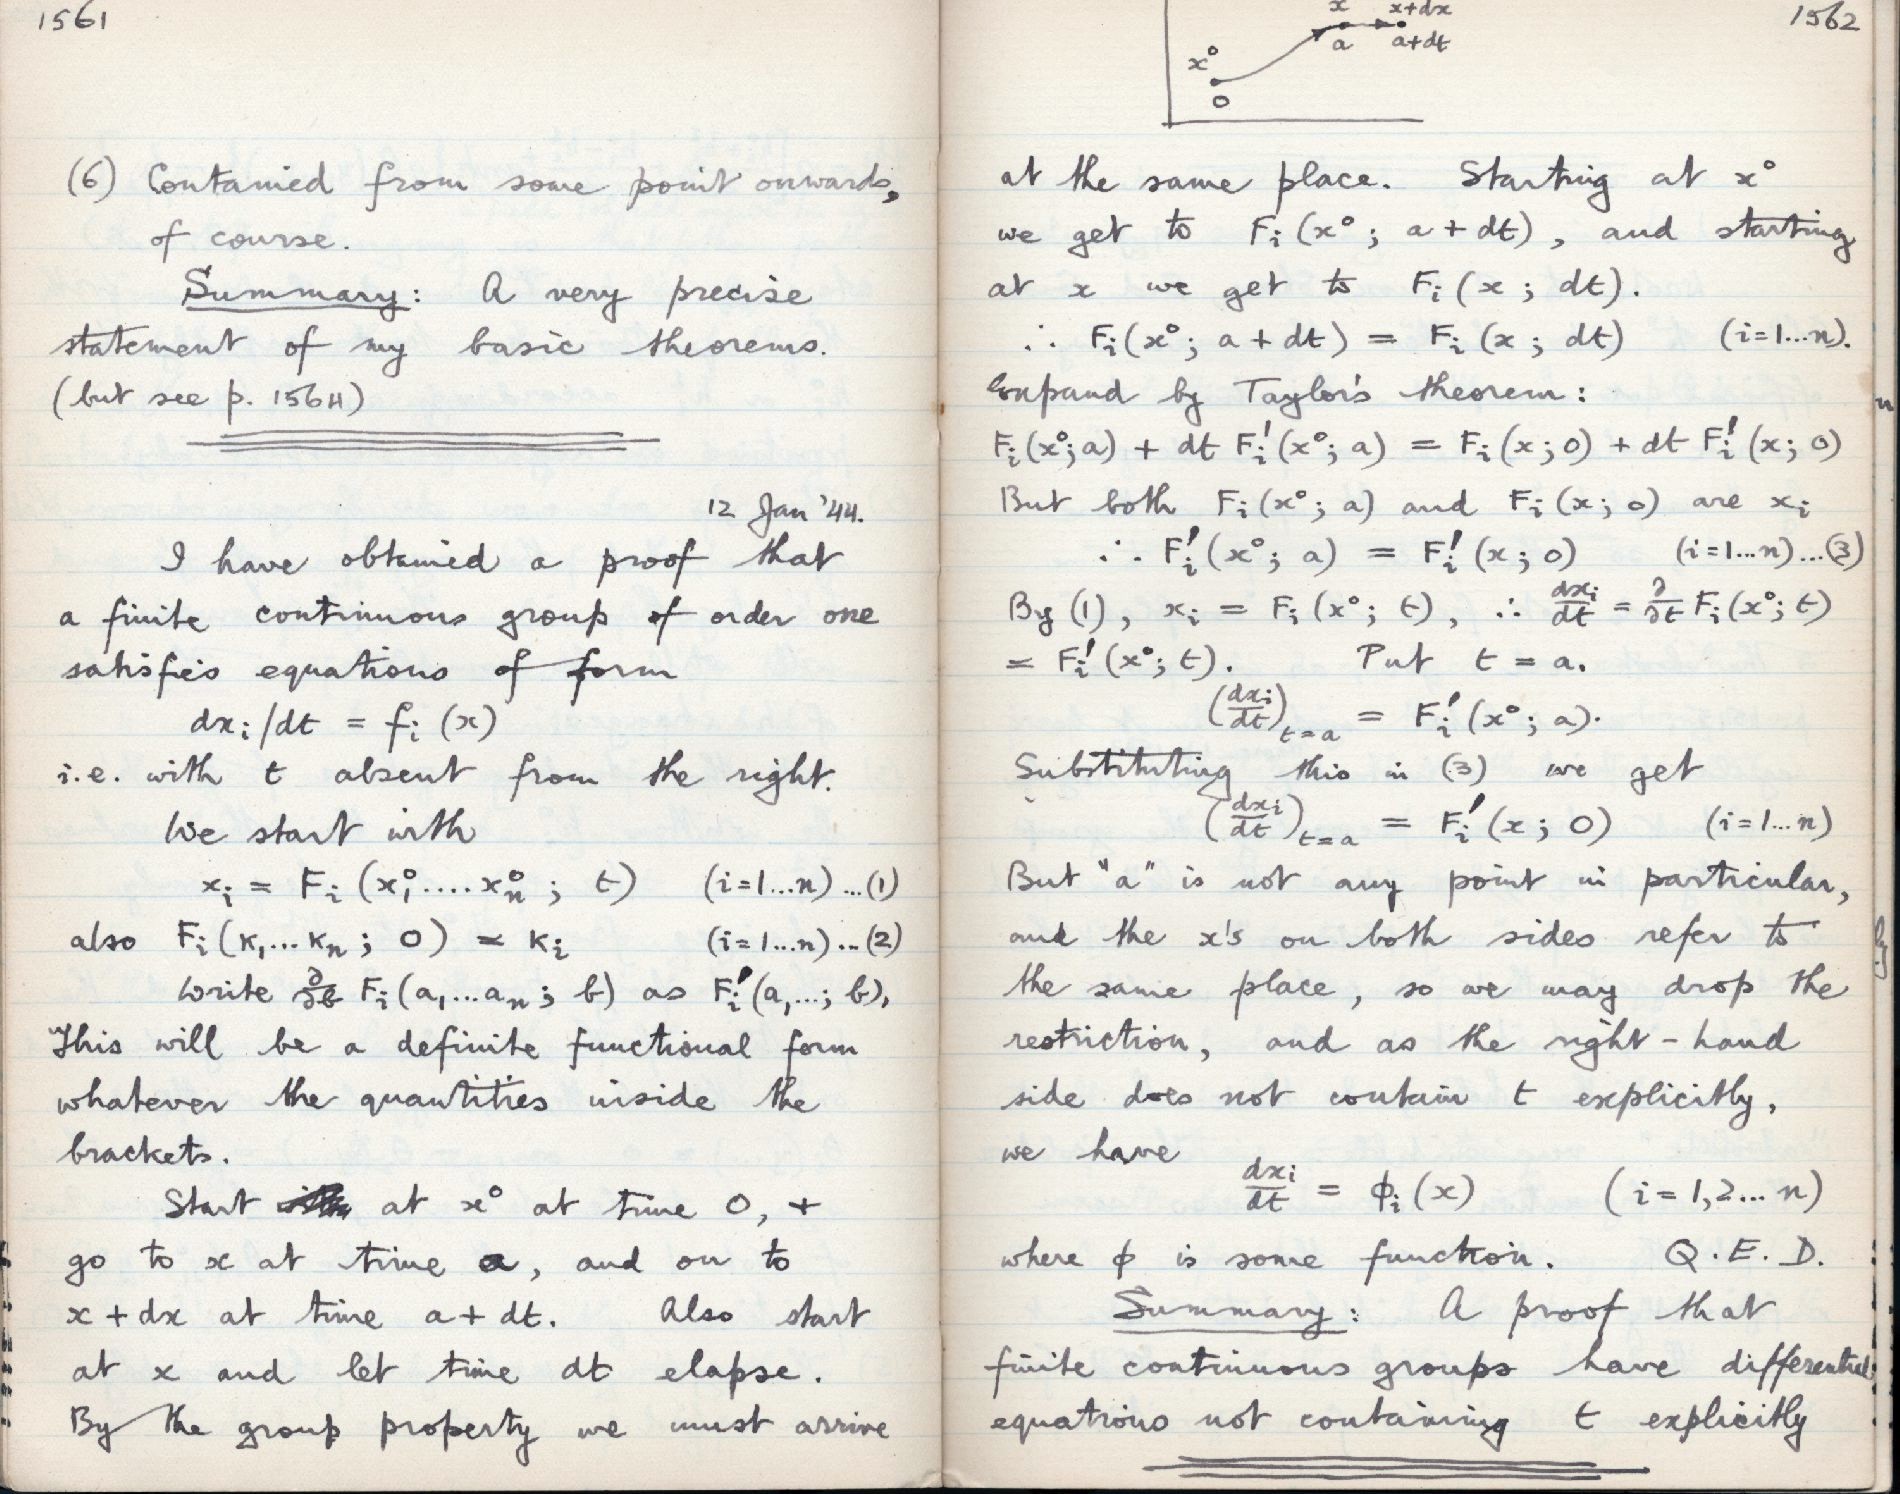 1561
(6) Contained from some point onwards,
of course.
Summary: A very precise
statement of my basic theorems.
(but see p. 1564)
12 Jan '44.
I have obtained a proof that
a finite continuous group of order one
satisfies equations of form
dxi/dt = fi (x)
i.e. with t absent from the right.
We start with
xi = Fi (x₁°....xn° ; t) (i=1...n)...(1)
also Fi (k₁...kn ; 0) = ki (i=1...n)...(2)
Write ∂/∂b Fi (a₁...an ; b) as Fi' (a₁...; b),
This will be a definite functional form
whatever the quantities inside the
brackets.
Start at x° at time 0, +
go to x at time a, and on to
x + dx at time a + dt. Also start
at x and let time dt elapse.
By the group property we must arrive
1562
x x+dx
a a+dt
x°
0
at the same place. Starting at x°
we get to Fi (x° ; a + dt), and starting
at x we get to Fi (x ; dt).
∴ Fi (x° ; a + dt) = Fi (x ; dt) (i=1...n).
Expand by Taylor's theorem:
Fi (x°; a) + dt Fi' (x°; a) = Fi (x; 0) + dt Fi' (x; 0)
But both Fi (x°; a) and Fi (x; 0) are xi
∴ Fi' (x°; a) = Fi' (x; 0) (i=1...n)...(3)
By (1), xi = Fi (x°; t), ∴ dxi/dt = ∂/∂t Fi (x°; t)
= Fi' (x°; t). Put t = a.
(dxi/dt)t=a = Fi' (x°; a).
Substituting this in (3) we get
(dxi/dt)t=a = Fi' (x; 0) (i=1...n)
But "a" is not any point in particular,
and the x's on both sides refer to
the same place, so we may drop the
restriction, and as the right-hand
side does not contain t explicitly,
we have
dxi/dt = ϕi (x) (i = 1,2... n)
where ϕ is some function. Q.E.D.
Summary: A proof that
finite continuous groups have differential
equations not containing t explicitly